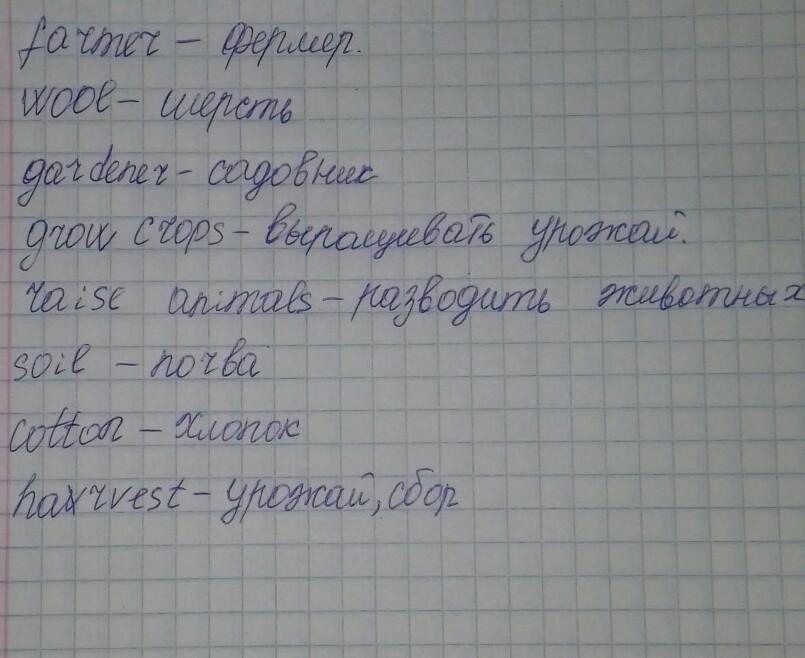 farmer – фермер.
wool – шерсть
gardener – садовник
grow crops – выращивать урожай.
raise animals – разводить животных
soil – почва
cotton – хлопок
harvest – урожай, сбор